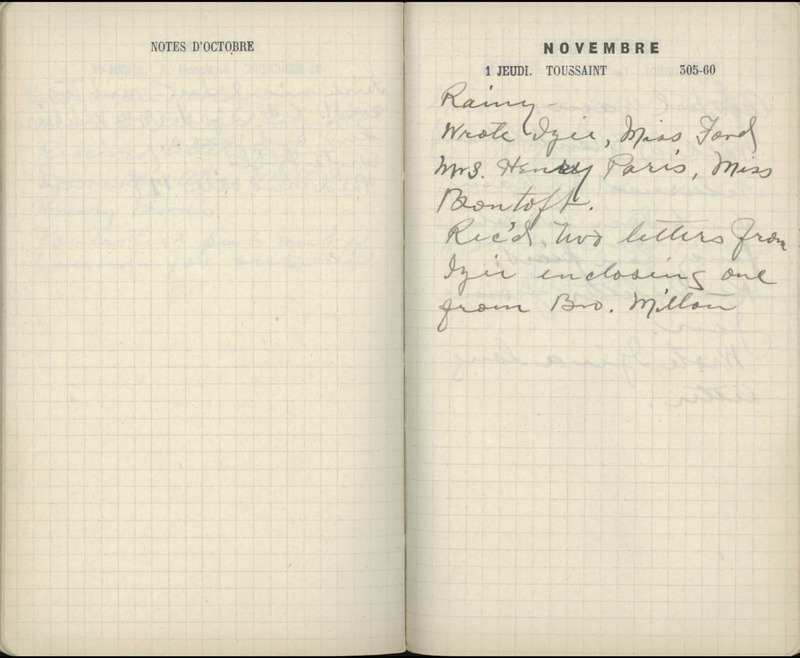 NOTES D'OCTOBRE
NOVEMBRE
1 JEUDI. TOUSSAINT 305-60
Rainy —
Wrote Izie, Miss Ford
Mrs. Henry Paris, Miss
Bontoft.
Rec'd two letters from
Izie enclosing one
from Bro. Milton